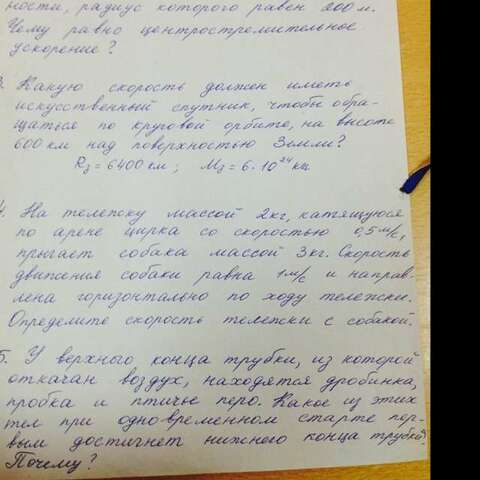 ности, радиус которого равен 200 м.
Чему равно центростремительное
ускорение?
3. Какую скорость должен иметь
искусственный спутник, чтобы обра-
щаться по круговой орбите, на высоте
600 км над поверхностью Земли?
Rз = 6400 км ; Mз = 6·10²⁴ кг
4. На тележку массой 2кг, катящуюся
по арене цирка со скоростью 0,5 м/с,
прыгает собака массой 3кг. Скорость
движения собаки равна 1 м/с и направ-
лена горизонтально по ходу тележки.
Определите скорость тележки с собакой.
5. У верхнего конца трубки, из которой
откачан воздух, находятся дробинка,
пробка и птичье перо. Какое из этих
тел при одновременном старте пер-
вым достигнет нижнего конца трубки?
Почему?